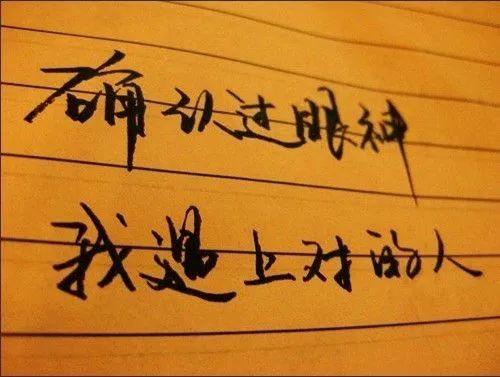 确认过眼神
我遇上对的人